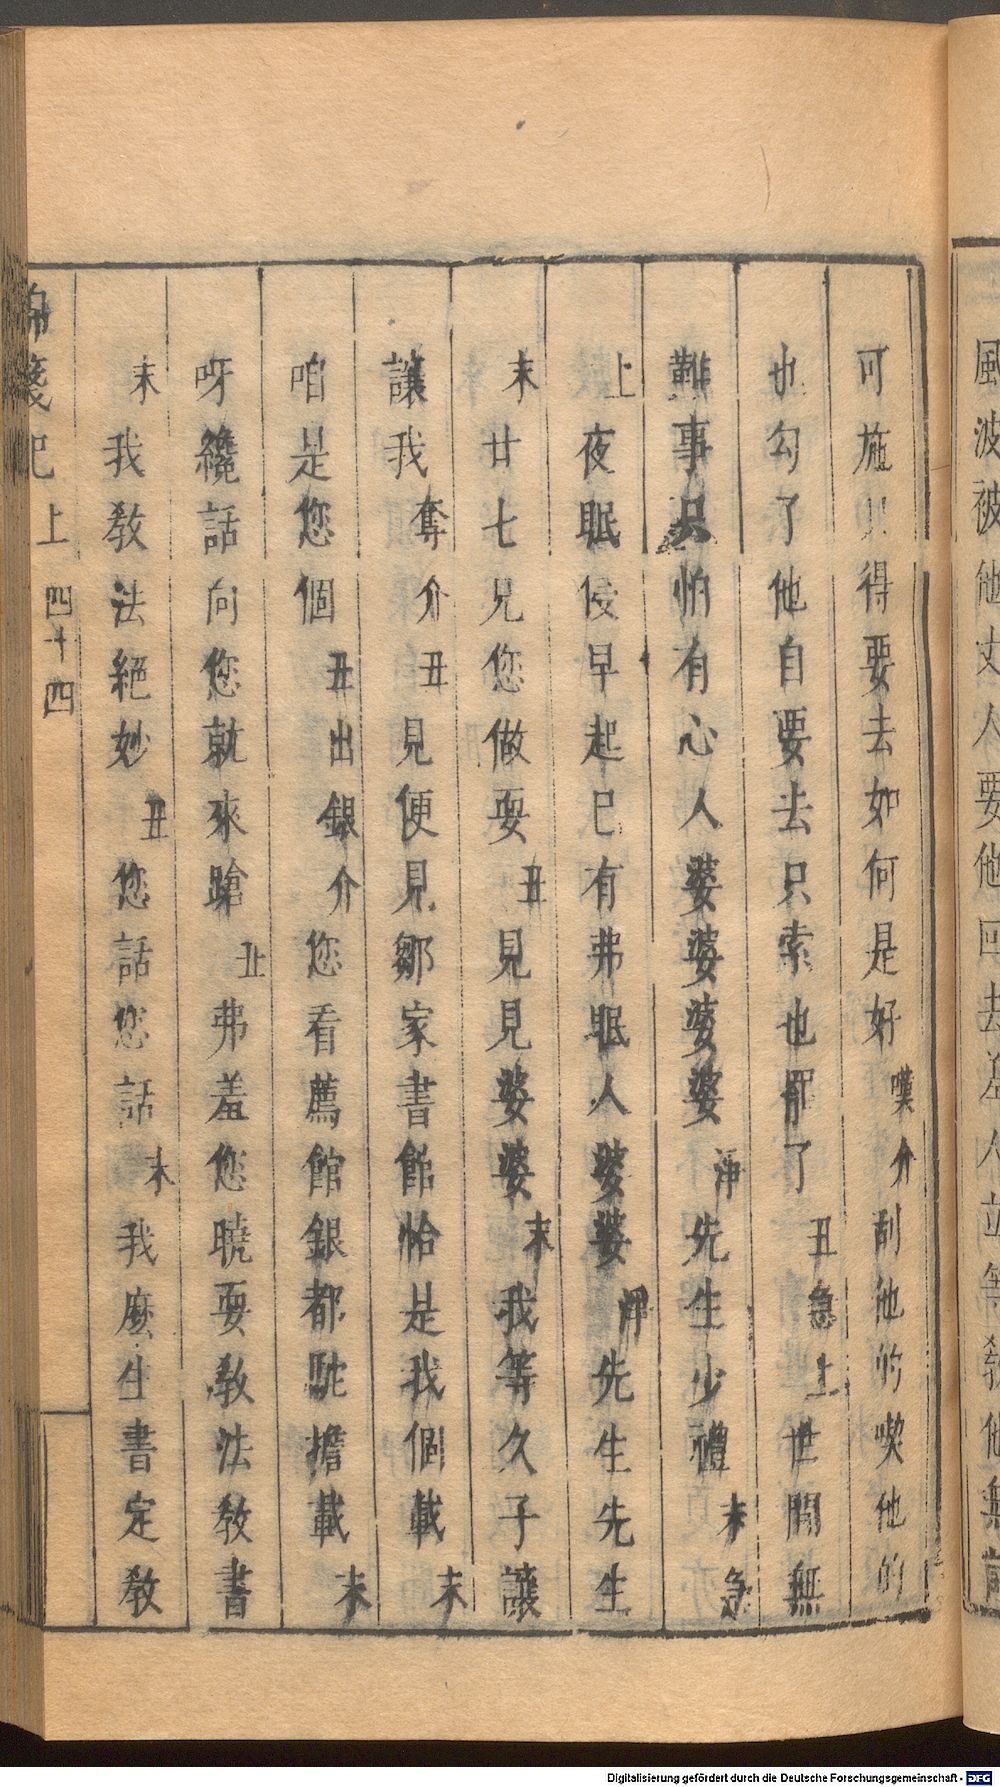 風波被他丈人要他回去羞人立等教他無計
可施只得要去如何是好嘆介刮他的喫他的
也勾了他自要去只索也罷了丑急上世間無
難事只怕有心人婆婆婆婆淨先生少禮末急
上夜眠侵早起已有弗眠人婆婆淨先生先生
末廿七兄您做耍丑見見婆婆末我等久子讓
讓我奪介丑見便見鄒家書館恰是我個載末
咱是您個丑出銀介您看薦館銀都駝擔載末
呀纔話向您就來蹌丑弗羞您曉耍教法教書
末我教法絕妙丑您話您話末我麽生書定教
箋記 上 四十四
Digitalisierung gefördert durch die Deutsche Forschungsgemeinschaft - DFG